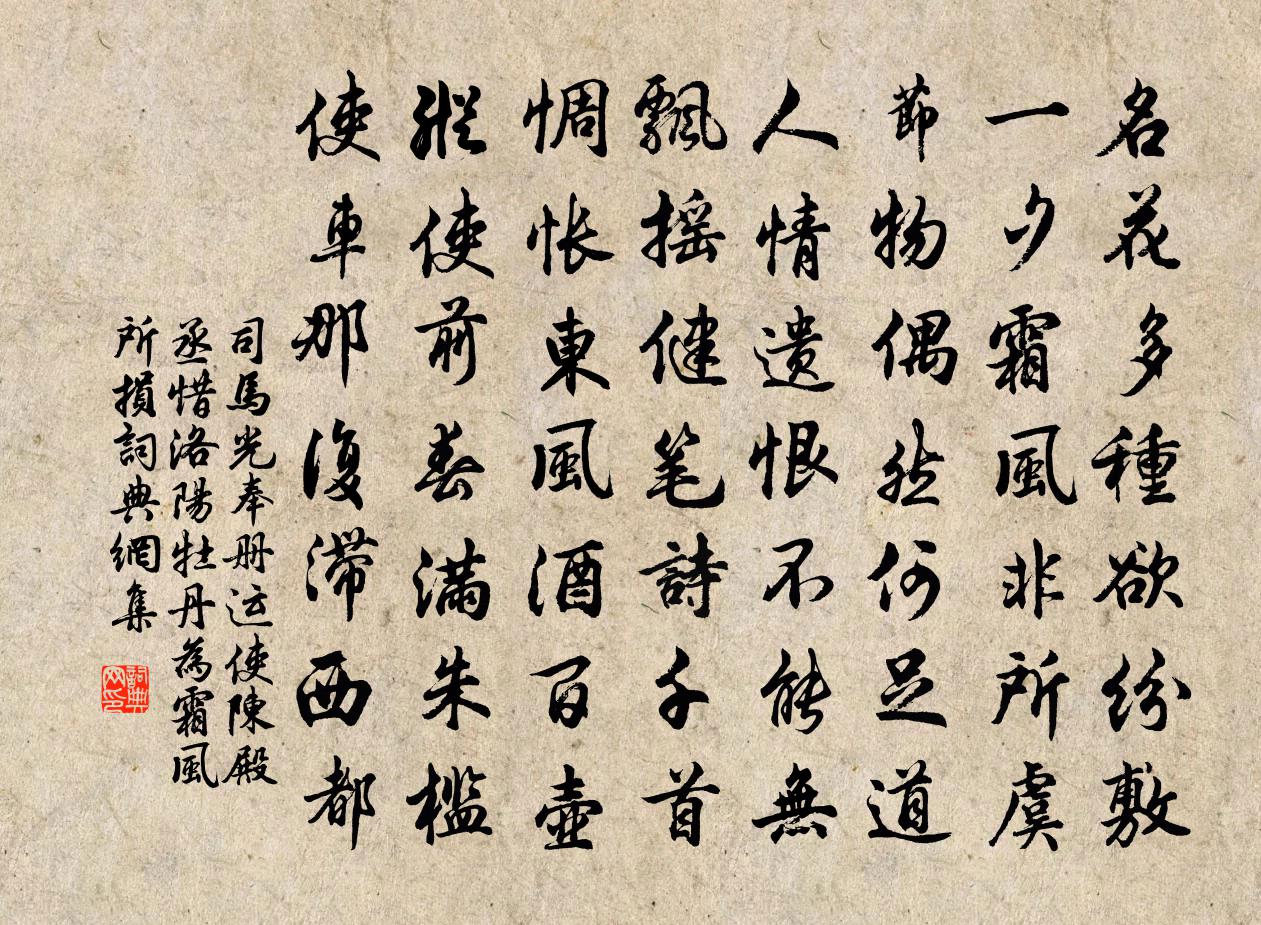 名花多種欲紛敷
一夕霜風非所虞
節物偶然何足道
人情遺恨不能無
飄摇健笔詩千首
惆怅東風酒百壺
縱使前春滿朱檻
使車那復滯西都
司馬光奉册运使陳殿
丞惜洛陽牡丹為霜風
所損詞典網集
詞典
网印